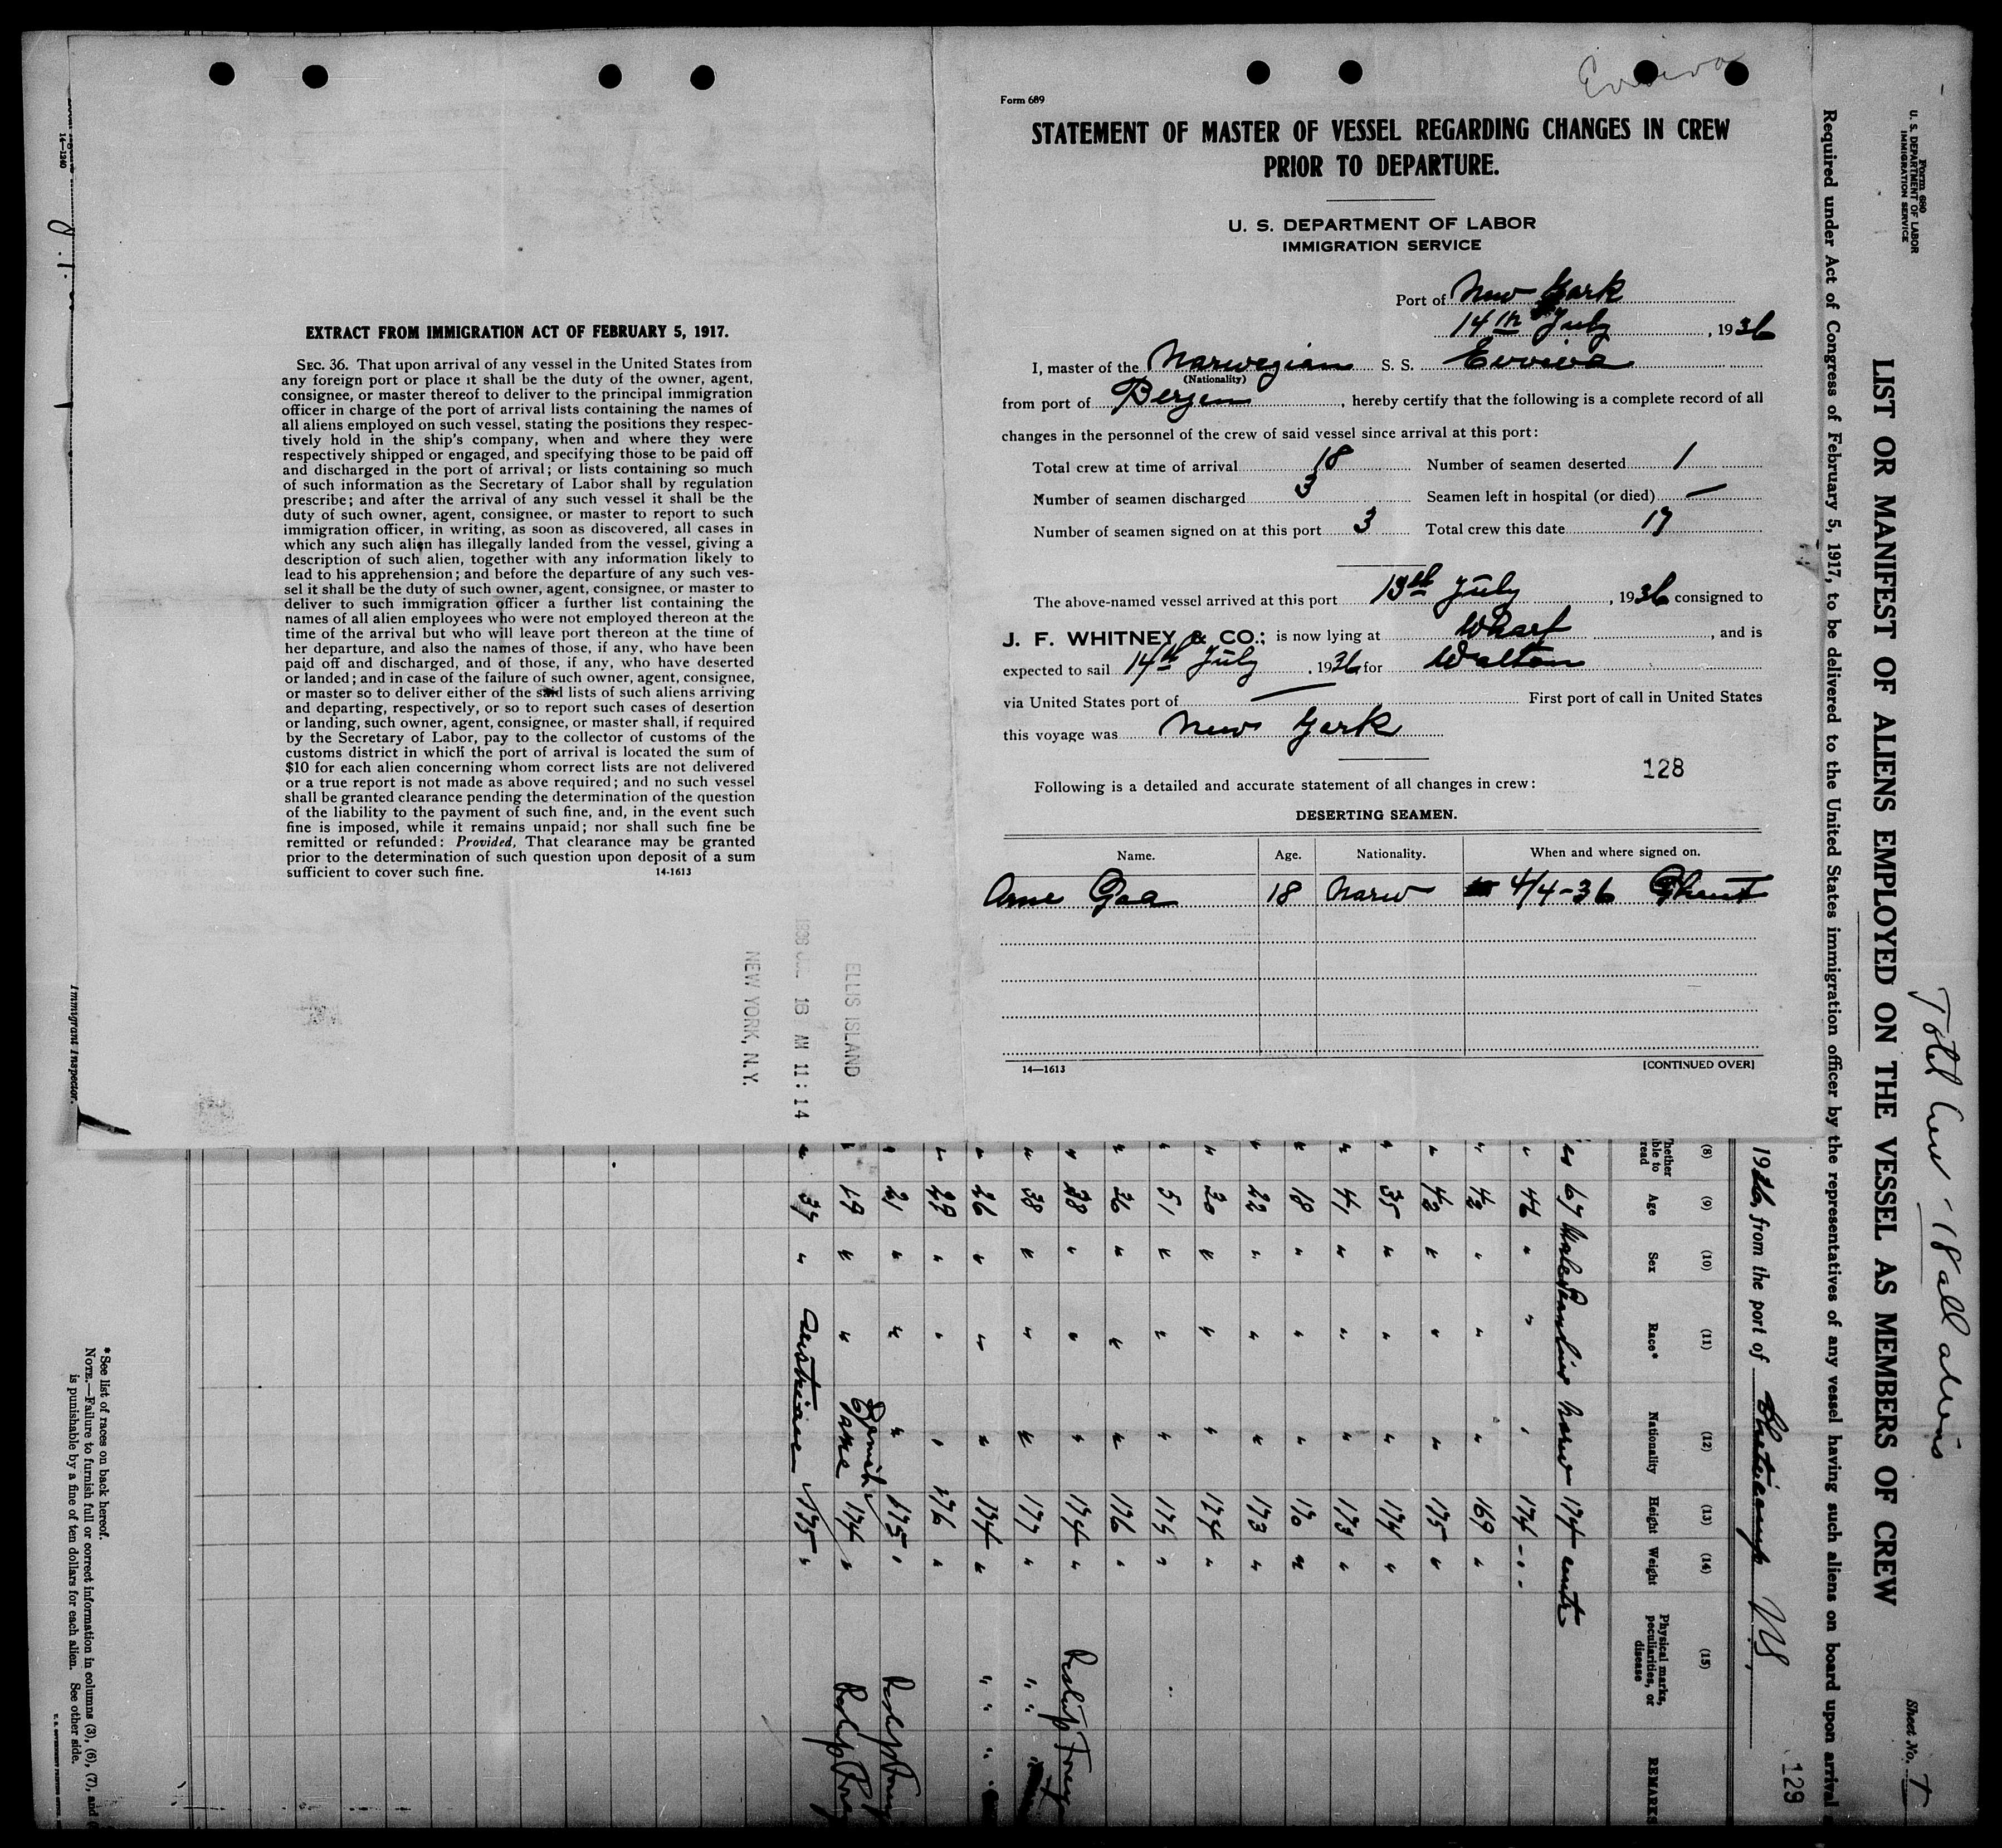 Evviva
Form 689
STATEMENT OF MASTER OF VESSEL REGARDING CHANGES IN CREW
PRIOR TO DEPARTURE.
U. S. DEPARTMENT OF LABOR
IMMIGRATION SERVICE
Port of New York
14th July, 1936
I, master of the Norwegian S. S. Evviva
(Nationality)
from port of Bergen, hereby certify that the following is a complete record of all
changes in the personnel of the crew of said vessel since arrival at this port:
Total crew at time of arrival 18 Number of seamen deserted 1
Number of seamen discharged 3 Seamen left in hospital (or died) —
Number of seamen signed on at this port 3 Total crew this date 17
The above-named vessel arrived at this port 13th July, 1936 consigned to
J. F. WHITNEY & CO.; is now lying at Wharf, and is
expected to sail 14th July, 1936 for Walton
via United States port of — First port of call in United States
this voyage was New York
128
Following is a detailed and accurate statement of all changes in crew:
DESERTING SEAMEN.
Name. Age. Nationality. When and where signed on.
Arne Goa 18 Norw 4/4-36 Ghent
14—1613 [CONTINUED OVER]
EXTRACT FROM IMMIGRATION ACT OF FEBRUARY 5, 1917.
SEC. 36. That upon arrival of any vessel in the United States from
any foreign port or place it shall be the duty of the owner, agent,
consignee, or master thereof to deliver to the principal immigration
officer in charge of the port of arrival lists containing the names of
all aliens employed on such vessel, stating the positions they respec-
tively hold in the ship's company, when and where they were
respectively shipped or engaged, and specifying those to be paid off
and discharged in the port of arrival; or lists containing so much
of such information as the Secretary of Labor shall by regulation
prescribe; and after the arrival of any such vessel it shall be the
duty of such owner, agent, consignee, or master to report to such
immigration officer, in writing, as soon as discovered, all cases in
which any such alien has illegally landed from the vessel, giving a
description of such alien, together with any information likely to
lead to his apprehension; and before the departure of any such ves-
sel it shall be the duty of such owner, agent, consignee, or master to
deliver to such immigration officer a further list containing the
names of all alien employees who were not employed thereon at the
time of the arrival but who will leave port thereon at the time of
her departure, and also the names of those, if any, who have been
paid off and discharged, and of those, if any, who have deserted
or landed; and in case of the failure of such owner, agent, consignee,
or master so to deliver either of the said lists of such aliens arriving
and departing, respectively, or so to report such cases of desertion
or landing, such owner, agent, consignee, or master shall, if required
by the Secretary of Labor, pay to the collector of customs of the
customs district in which the port of arrival is located the sum of
$10 for each alien concerning whom correct lists are not delivered
or a true report is not made as above required; and no such vessel
shall be granted clearance pending the determination of the question
of the liability to the payment of such fine, and, in the event such
fine is imposed, while it remains unpaid; nor shall such fine be
remitted or refunded: Provided, That clearance may be granted
prior to the determination of such question upon deposit of a sum
sufficient to cover such fine. 14-1613
ELLIS ISLAND
1936 JUL 16 AM 11:14
NEW YORK, N.Y.
14—1240
Immigrant Inspector.
Form 680
U. S. DEPARTMENT OF LABOR
IMMIGRATION SERVICE
Total Crew - 18 all aliens
Sheet No. 1
LIST OR MANIFEST OF ALIENS EMPLOYED ON THE VESSEL AS MEMBERS OF CREW
Required under Act of Congress of February 5, 1917, to be delivered to the United States immigration officer by the representatives of any vessel having such aliens on board upon arrival
129
1936, from the port of Cheticamp NS
(8) (9) (10) (11) (12) (13) (14) (15)
able to read Age Sex Race* Nationality Height Weight Physical marks, peculiarities, or disease REMARKS
67 Male Norw 174
" 46 " " " 174 "
" 42 " " " 169 "
" 42 " " " 175 "
" 35 " " " 174 "
" 41 " " " 173 "
" 18 " " " 170 "
" 22 " " " 173 "
" 20 " " " 174 "
" 51 " " " 175 "
" 26 " " " 176 "
" 38 " " " 174 "
" 38 " " " 177 "
" 26 " " " 174 "
" 29 " " " 176 "
" 21 " " " 175 "
" 19 " " Danish 174 "
" 37 " Austrian 175 "
*See list of races on back hereof.
NOTE.—Failure to furnish full or correct information in columns (3), (6), (7), and
is punishable by a fine of ten dollars for each alien. See other side.